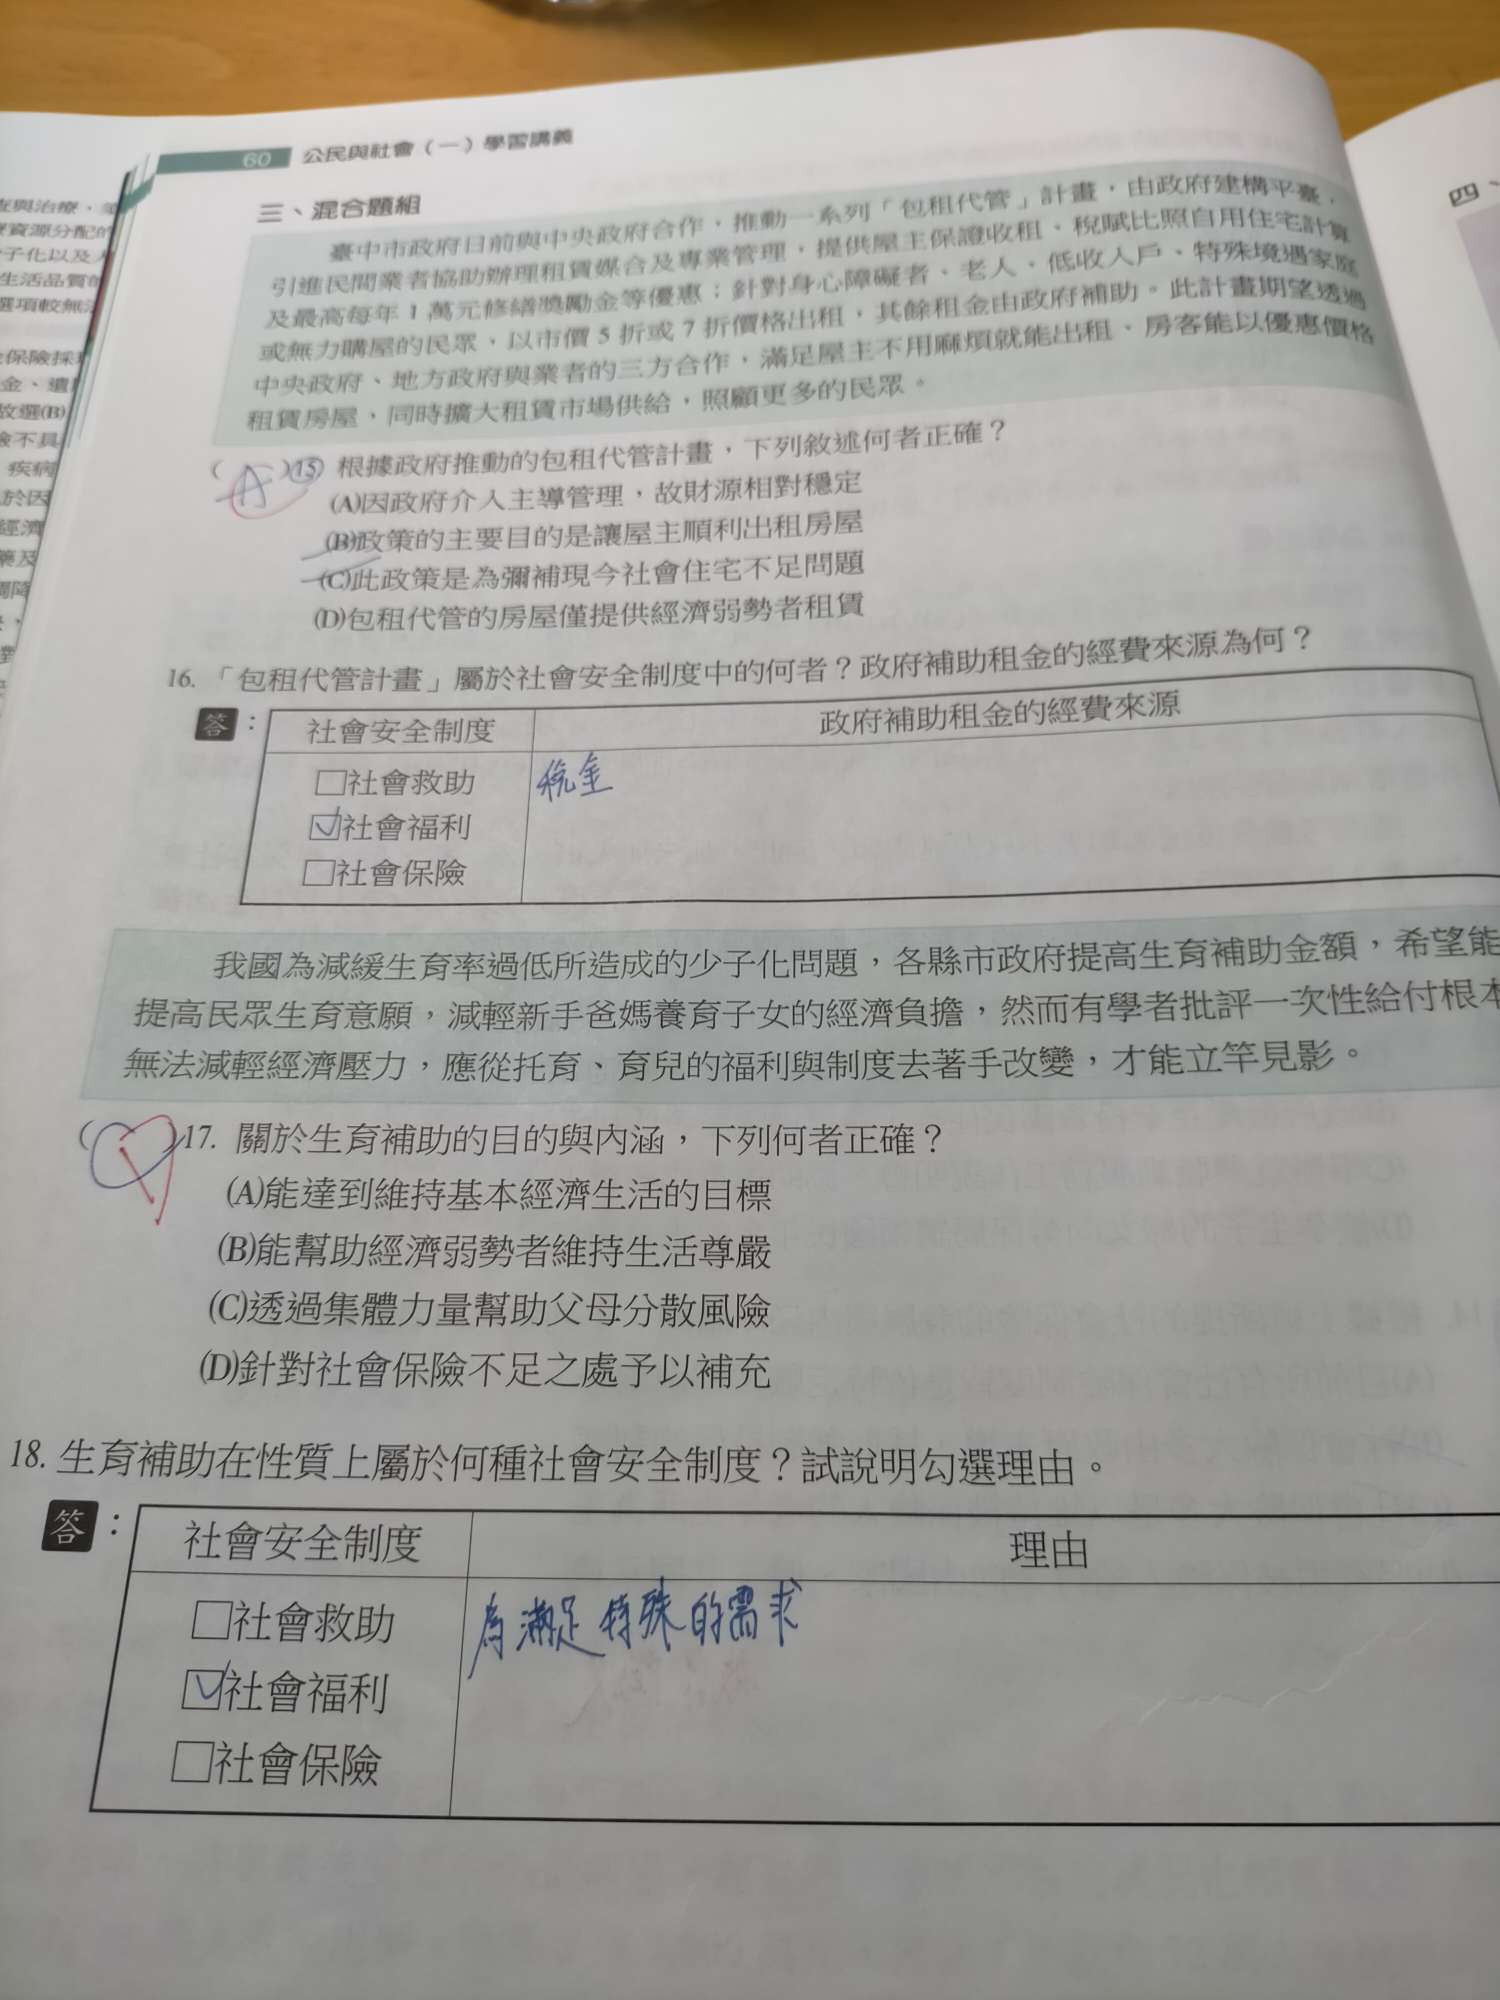 60 公民與社會（一）學習講義
三、混合題組
臺中市政府日前與中央政府合作，推動一系列「包租代管」計畫，由政府建構平臺，
引進民間業者協助辦理租賃媒合及專業管理，提供屋主保證收租、稅賦比照自用住宅計算
及最高每年1萬元修繕獎勵金等優惠；針對身心障礙者、老人、低收入戶、特殊境遇家庭
或無力購屋的民眾，以市價5折或7折價格出租，其餘租金由政府補助。此計畫期望透過
中央政府、地方政府與業者的三方合作，滿足屋主不用麻煩就能出租、房客能以優惠價格
租賃房屋、同時擴大租賃市場供給，照顧更多的民眾。
( A )15 根據政府推動的包租代管計畫，下列敘述何者正確？
(A)因政府介入主導管理，故財源相對穩定
(B)政策的主要目的是讓屋主順利出租房屋
(C)此政策是為彌補現今社會住宅不足問題
(D)包租代管的房屋僅提供經濟弱勢者租賃
16. 「包租代管計畫」屬於社會安全制度中的何者？政府補助租金的經費來源為何？
答： 社會安全制度 政府補助租金的經費來源
□社會救助 稅金
☑社會福利
□社會保險
我國為減緩生育率過低所造成的少子化問題，各縣市政府提高生育補助金額，希望能
提高民眾生育意願，減輕新手爸媽養育子女的經濟負擔，然而有學者批評一次性給付根本
無法減輕經濟壓力，應從托育、育兒的福利與制度去著手改變，才能立竿見影。
( )17. 關於生育補助的目的與內涵，下列何者正確？
(A)能達到維持基本經濟生活的目標
(B)能幫助經濟弱勢者維持生活尊嚴
(C)透過集體力量幫助父母分散風險
(D)針對社會保險不足之處予以補充
18. 生育補助在性質上屬於何種社會安全制度？試說明勾選理由。
答： 社會安全制度 理由
□社會救助 為滿足特殊的需求
☑社會福利
□社會保險
四、